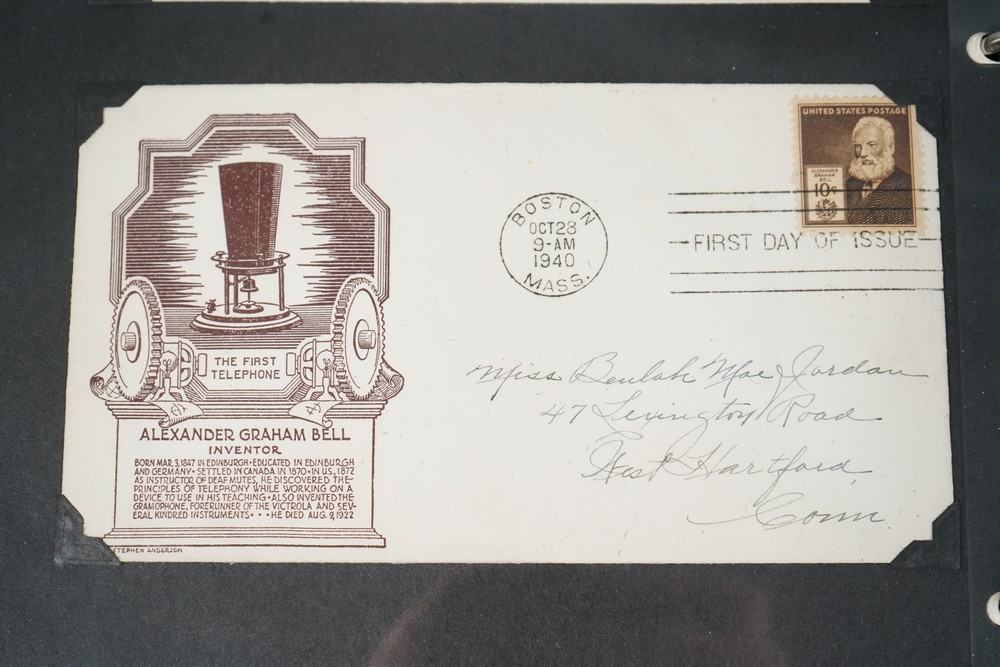 THE FIRST
TELEPHONE
ALEXANDER GRAHAM BELL
INVENTOR
BORN MAR. 3, 1847 IN EDINBURGH • EDUCATED IN EDINBURGH
AND GERMANY • SETTLED IN CANADA IN 1870 • IN U.S., 1872
AS INSTRUCTOR OF DEAF MUTES, HE DISCOVERED THE
PRINCIPLES OF TELEPHONY WHILE WORKING ON A
DEVICE TO USE IN HIS TEACHING • ALSO INVENTED THE
GRAMOPHONE, FORERUNNER OF THE VICTROLA AND SEV-
ERAL KINDRED INSTRUMENTS • • • HE DIED AUG. 9, 1922
STEPHEN ANDERSON
BOSTON
OCT 28
9-AM
1940
MASS.
UNITED STATES POSTAGE
ALEXANDER
GRAHAM
BELL
10¢
FIRST DAY OF ISSUE
Miss Beulah Mae Jordan
47 Lexington Road
West Hartford,
Conn.